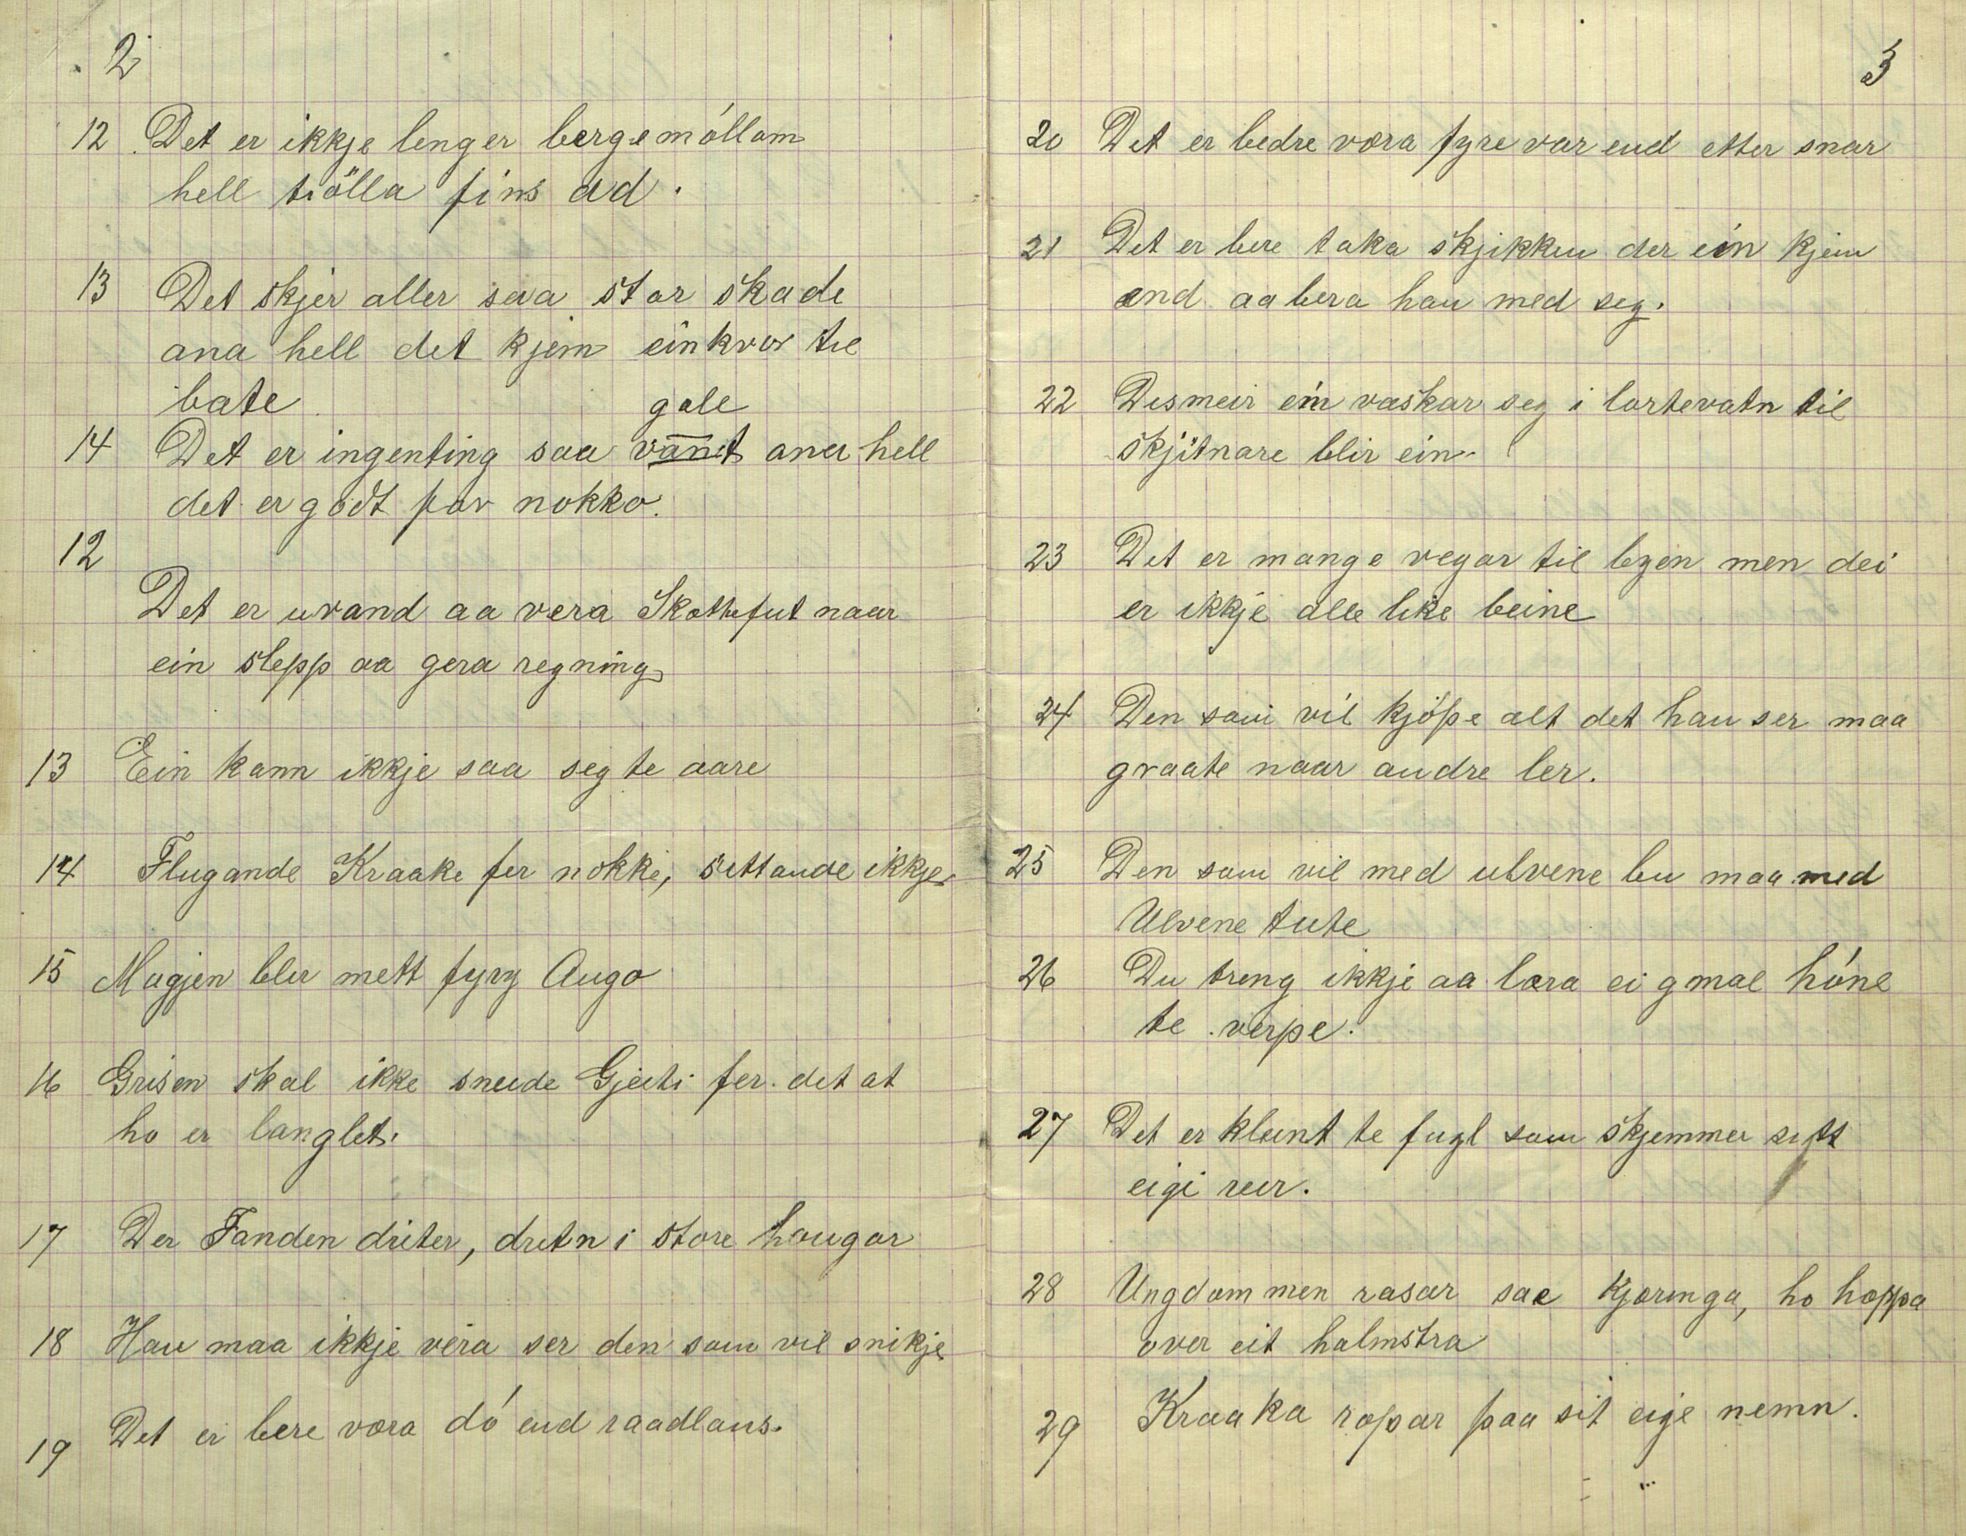 2
12 Det er ikkje lenger bergemóllom
hell tiölla fins ad.
13 Det skjer aller saa stor skade
ana hell det kjem einkvor til
bate
gale
14 Det er ingenting saa vandt ana hell
det er godt for nokko.
12
Det er uvand aa vera Skattefut naar
ein slepp aa gera regning
13 Ein kann ikkje saa seg te aare
14 Flugande Kraake fer nokke, sittande ikkje
15 Magjen blir mett fyry Augo
16 Grisen skal ikke sneide Gjeiti fer det at
ho er langlet.
17 Der Fanden driter, dretn i store hougar
18 Hau maa ikkje vera ser den som vil snikje
19 Det er bere væra dó end raadlaus.
3
20 Det er bedre væra fyre var end etter snar
21 Det er bere taka skjikken der ein kjem
end aa bera han med seg.
22 Desmeir ein vaskar seg i lortevatn til
skjitnare blir ein
23 Det er mange vegar til byen men dei
er ikkje alle like beine
24 Den som vil kjöpe alt det han ser maa
graate naar andre ler.
25 Den som vil med ulvene bu maa med
Ulvene tute
26 Du treng ikkje aa læra ei gmal hóne
te verpe.
27 Det er kleint te fugl som skjemmer sitt
eigi reir.
28 Ungdommen rasar sae Kjæringa, ho hoppa
over eit halmstra
29 Kraaka ropar paa sit eige nemn.